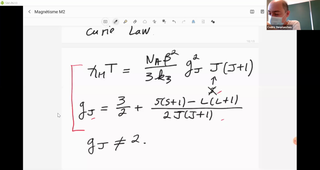 Magnétisme M2
Curie Law
χ_M T = N_A β² / 3 k_B g_J² J(J+1)
g_J = 3/2 + S(S+1) - L(L+1) / 2J(J+1)
g_J ≠ 2.